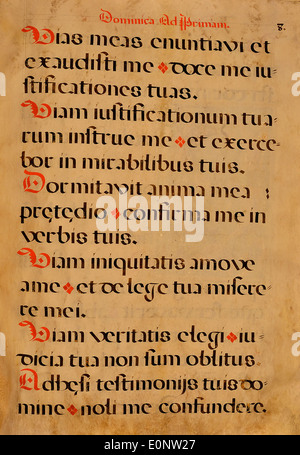 Dominica Ad Primam.
8.
Vias meas enuntiavi et
exaudisti me doce me iu-
stificationes tuas.
Viam iustificationum tua-
rum instrue me et exerce-
bor in mirabilibus tuis.
Dormitavit anima mea
prętędio confirma me in
verbis tuis.
Viam iniquitatis amove
a me et de lege tua misere-
re mei.
Viam veritatis elegi iu-
dicia tua non sum oblitus.
Adhęsi testimonijs tuis do-
mine noli me confundere.
alamy stock photo
a
E0NW27
www.alamy.com